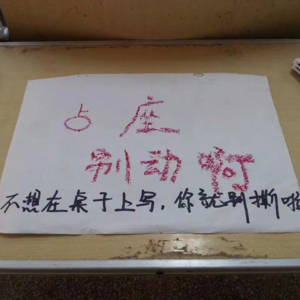 占座
别动啊
不想在桌子上写，你就别撕啦